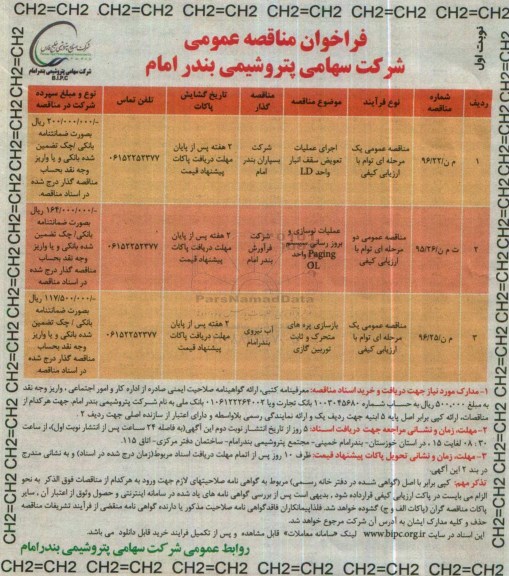 CH2=CH2 CH2=CH2 CH2=CH2 CH2=CH2 CH2=CH2 CH2=CH2
نوبت اول
فراخوان مناقصه عمومی
شرکت سهامی پتروشیمی بندر امام
شرکت سهامی پتروشیمی بندر امام
B.I.P.C
ردیف | شماره مناقصه | نوع فرآیند | موضوع مناقصه | مناقصه گذار | تاریخ گشایش پاکات | تلفن تماس | نوع و مبلغ سپرده شرکت در مناقصه
۱ | م ن/۹۶/۲۲ | مناقصه عمومی یک مرحله ای توام با ارزیابی کیفی | اجرای عملیات تعویض سقف انبار واحد LD | شرکت بسپاران بندر امام | ۲ هفته پس از پایان مهلت دریافت پاکات پیشنهاد قیمت | ۰۶۱۵۲۲۵۲۳۷۷ | ۲۰۰/۰۰۰/۰۰۰/- ریال بصورت ضمانتنامه بانکی /چک تضمین شده بانکی و یا واریز وجه نقد بحساب مناقصه گذار درج شده در اسناد مناقصه.
۲ | ت م ن/۹۵/۲۶ | مناقصه عمومی دو مرحله ای توام با ارزیابی کیفی | عملیات نوسازی و بروز رسانی سیستم Paging واحد OL | شرکت فرآورش بندر امام | ۲ هفته پس از پایان مهلت دریافت پاکات پیشنهاد قیمت | ۰۶۱۵۲۲۵۲۳۷۷ | ۱۶۴/۰۰۰/۰۰۰/- ریال بصورت ضمانتنامه بانکی/ چک تضمین شده بانکی و یا واریز وجه نقد بحساب مناقصه گذار درج شده در اسناد مناقصه.
۳ | م ن/۹۶/۲۵ | مناقصه عمومی یک مرحله ای توام با ارزیابی کیفی | بازسازی پره های متحرک و ثابت توربین گازی | آب نیروی بندرامام | ۲ هفته پس از پایان مهلت دریافت پاکات پیشنهاد قیمت | ۰۶۱۵۲۲۵۲۳۷۷ | ۱۱۷/۵۰۰/۰۰۰/- ریال بصورت ضمانتنامه بانکی / چک تضمین شده بانکی و یا واریز وجه نقد بحساب مناقصه گذار درج شده در اسناد مناقصه.
ParsNamadData
۱- مدارک مورد نیاز جهت دریافت و خرید اسناد مناقصه: معرفینامه کتبی، ارائه گواهینامه صلاحیت ایمنی صادره از اداره کار و امور اجتماعی ، واریز وجه نقد
به مبلغ ۵۰۰،۰۰۰ ریال به حساب شماره ۱۰۰۳۰۴۵۶۸۰ بانک تجارت ویا ۰۱۰۶۱۲۲۲۶۴۰۰۲ بانک ملی به نام شرکت پتروشیمی بندر امام. جهت هرکدام از
مناقصات، ارائه کپی برابر اصل پایه ۵ ابنیه جهت ردیف یک و ارائه نمایندگی رسمی بلاواسطه و دارای اعتبار از سازنده اصلی جهت ردیف ۲ .
۲- مهلت، زمان و نشانی مراجعه جهت دریافت اسناد: ۵ روز از تاریخ انتشار نوبت دوم این آگهی(به فاصله ۲۴ ساعت پس از انتشار نوبت اول)، از ساعت
۰۸:۳۰ لغایت ۱۵ ، در استان خوزستان- بندرامام خمینی- مجتمع پتروشیمی بندرامام- ساختمان دفتر مرکزی- اتاق ۱۱۵.
۳- مهلت، زمان و نشانی تحویل پاکات پیشنهاد قیمت: ظرف ۱۰ روز پس از اتمام مهلت دریافت اسناد مربوط(زمان درج شده در اسناد) و به نشانی مندرج
در بند ۲ این آگهی.
تذکر مهم: کپی برابر با اصل (گواهی شده در دفتر خانه رسمی) مربوط به گواهی نامه صلاحیتهای لازم جهت ورود به هرکدام از مناقصات فوق الذکر به نحو
الزام می بایست در پاکت ارزیابی کیفی قرارداده شود . بدیهی است پس از بررسی گواهی نامه های یاد شده در سامانه اینترنتی و حصول وثوق از اعتبار آن ، سایر
پاکات مناقصه گران (پاکات الف و ج) گشوده خواهد شد. فلذاپیمانکاران فاقدگواهی نامه صلاحیت مذکور یا دارنده گواهی نامه منقضی از آرایند تشریفات مناقصه
حذف و کلیه مدارک ایشان به آدرس آن شرکت مرجوع خواهد شد.
این اسناد در سایت www.bipc.org.ir لینک «سامانه معاملات» قابل مشاهده و پس از تکمیل فرایند خرید قابل دانلود می باشد.
روابط عمومی شرکت سهامی پتروشیمی بندرامام